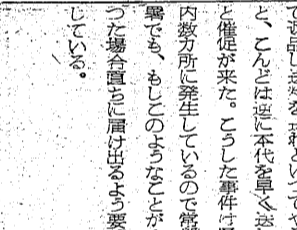 と、こんどは逆に本代を早く送
と催促が来た。こうした事件は
内数カ所に発生しているので常
署でも、もしこのようなことが
つた場合直ちに届け出るよう要
じている。